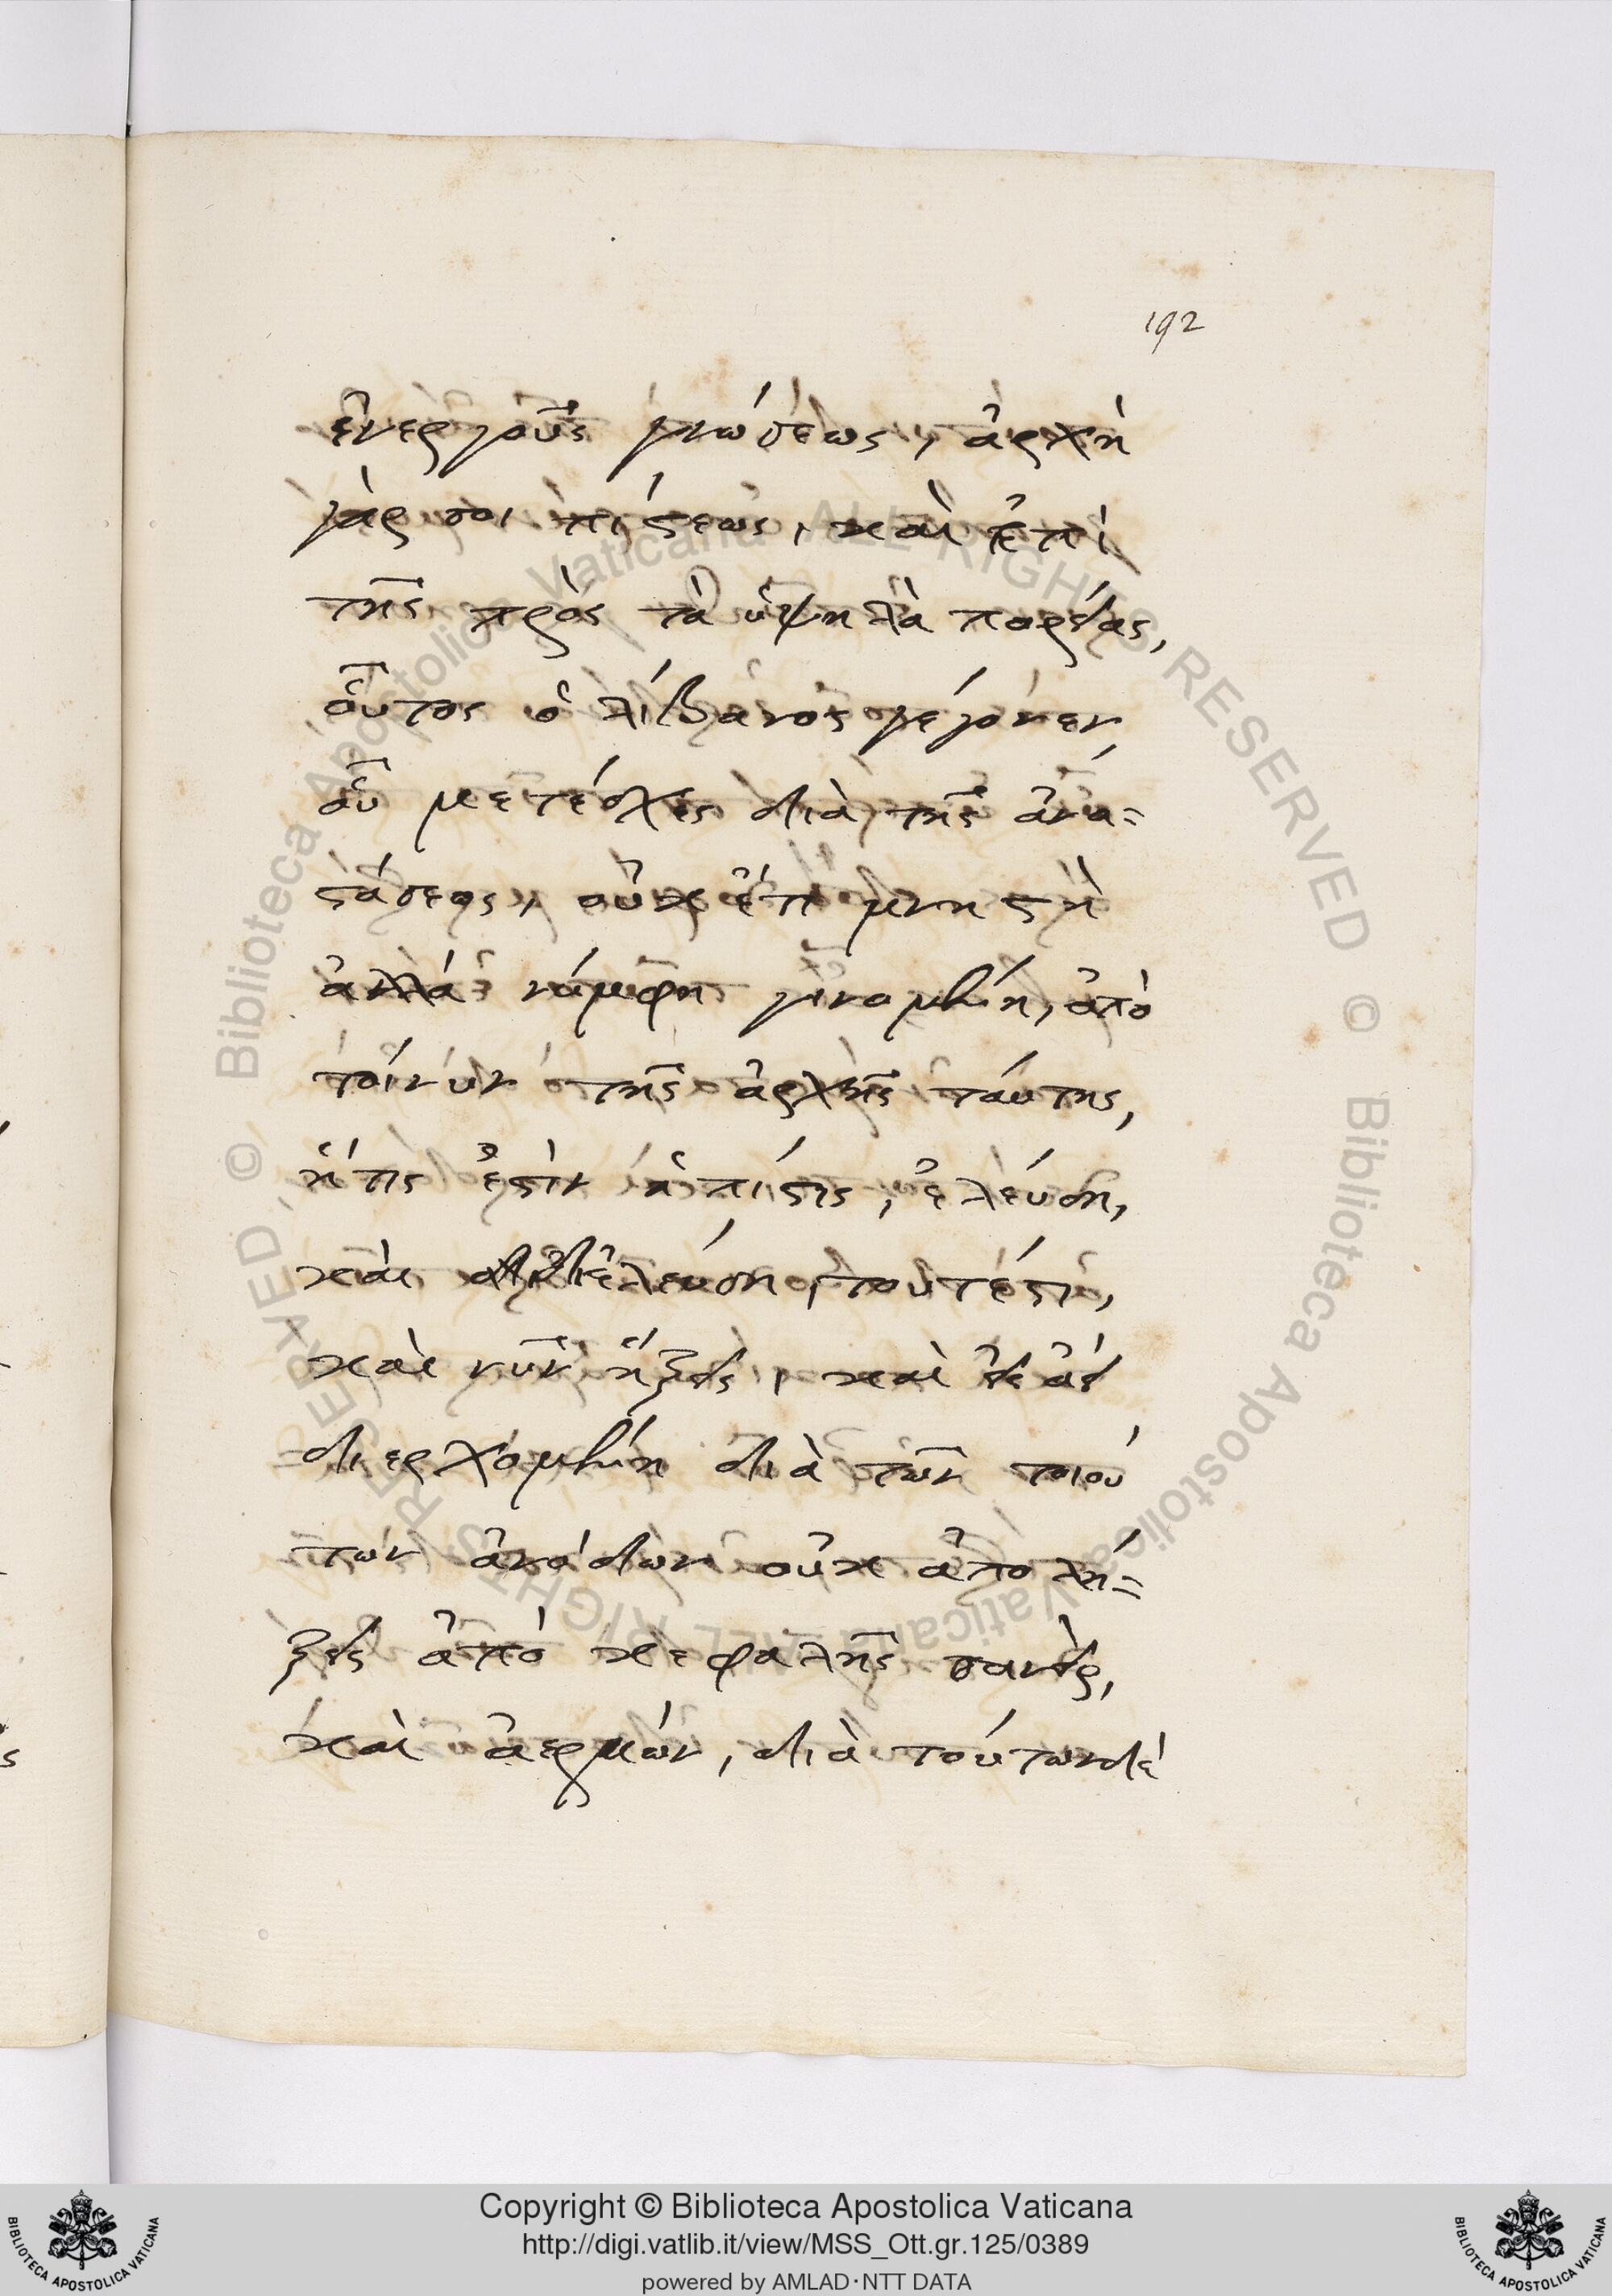 192
ἐνεργοῦς γνώσεως, ἀρχὴ
γάρ σοι πίστεως, καὶ ἐπὶ
τῆς πρὸς τὰ ὑψηλὰ πορείας,
οὗτος ὁ λίβανος γέγονεν
οὗ μετέσχες διὰ τῆς ἀνα=
στάσεως, οὐκ ἔτι μνηστὴ
ἀλλὰ νύμφη γινομένη, ἀπὸ
τοίνυν τῆς ἀρχῆς ταύτης,
ἥτις ἐστὶν ἡ πίστις, ἐλεύση,
καὶ διελεύση, τουτέστι,
καὶ νῦν ἥξεις, καὶ ἀεὶ
διερχομένη διὰ τῶν τοιού
των ἀνόδων οὐκ ἀπολή=
ξεις ἀπὸ κεφαλῆς σανεὶρ,
καὶ ἀερμών, διὰ τούτων δὲ
Copyright © Biblioteca Apostolica Vaticana
http://digi.vatlib.it/view/MSS_Ott.gr.125/0389
powered by AMLAD·NTT DATA
BIBLIOTECA APOSTOLICA VATICANA
BIBLIOTECA APOSTOLICA VATICANA
© Biblioteca Apostolica Vaticana ALL RIGHTS RESERVED
© Biblioteca Apostolica Vaticana ALL RIGHTS RESERVED